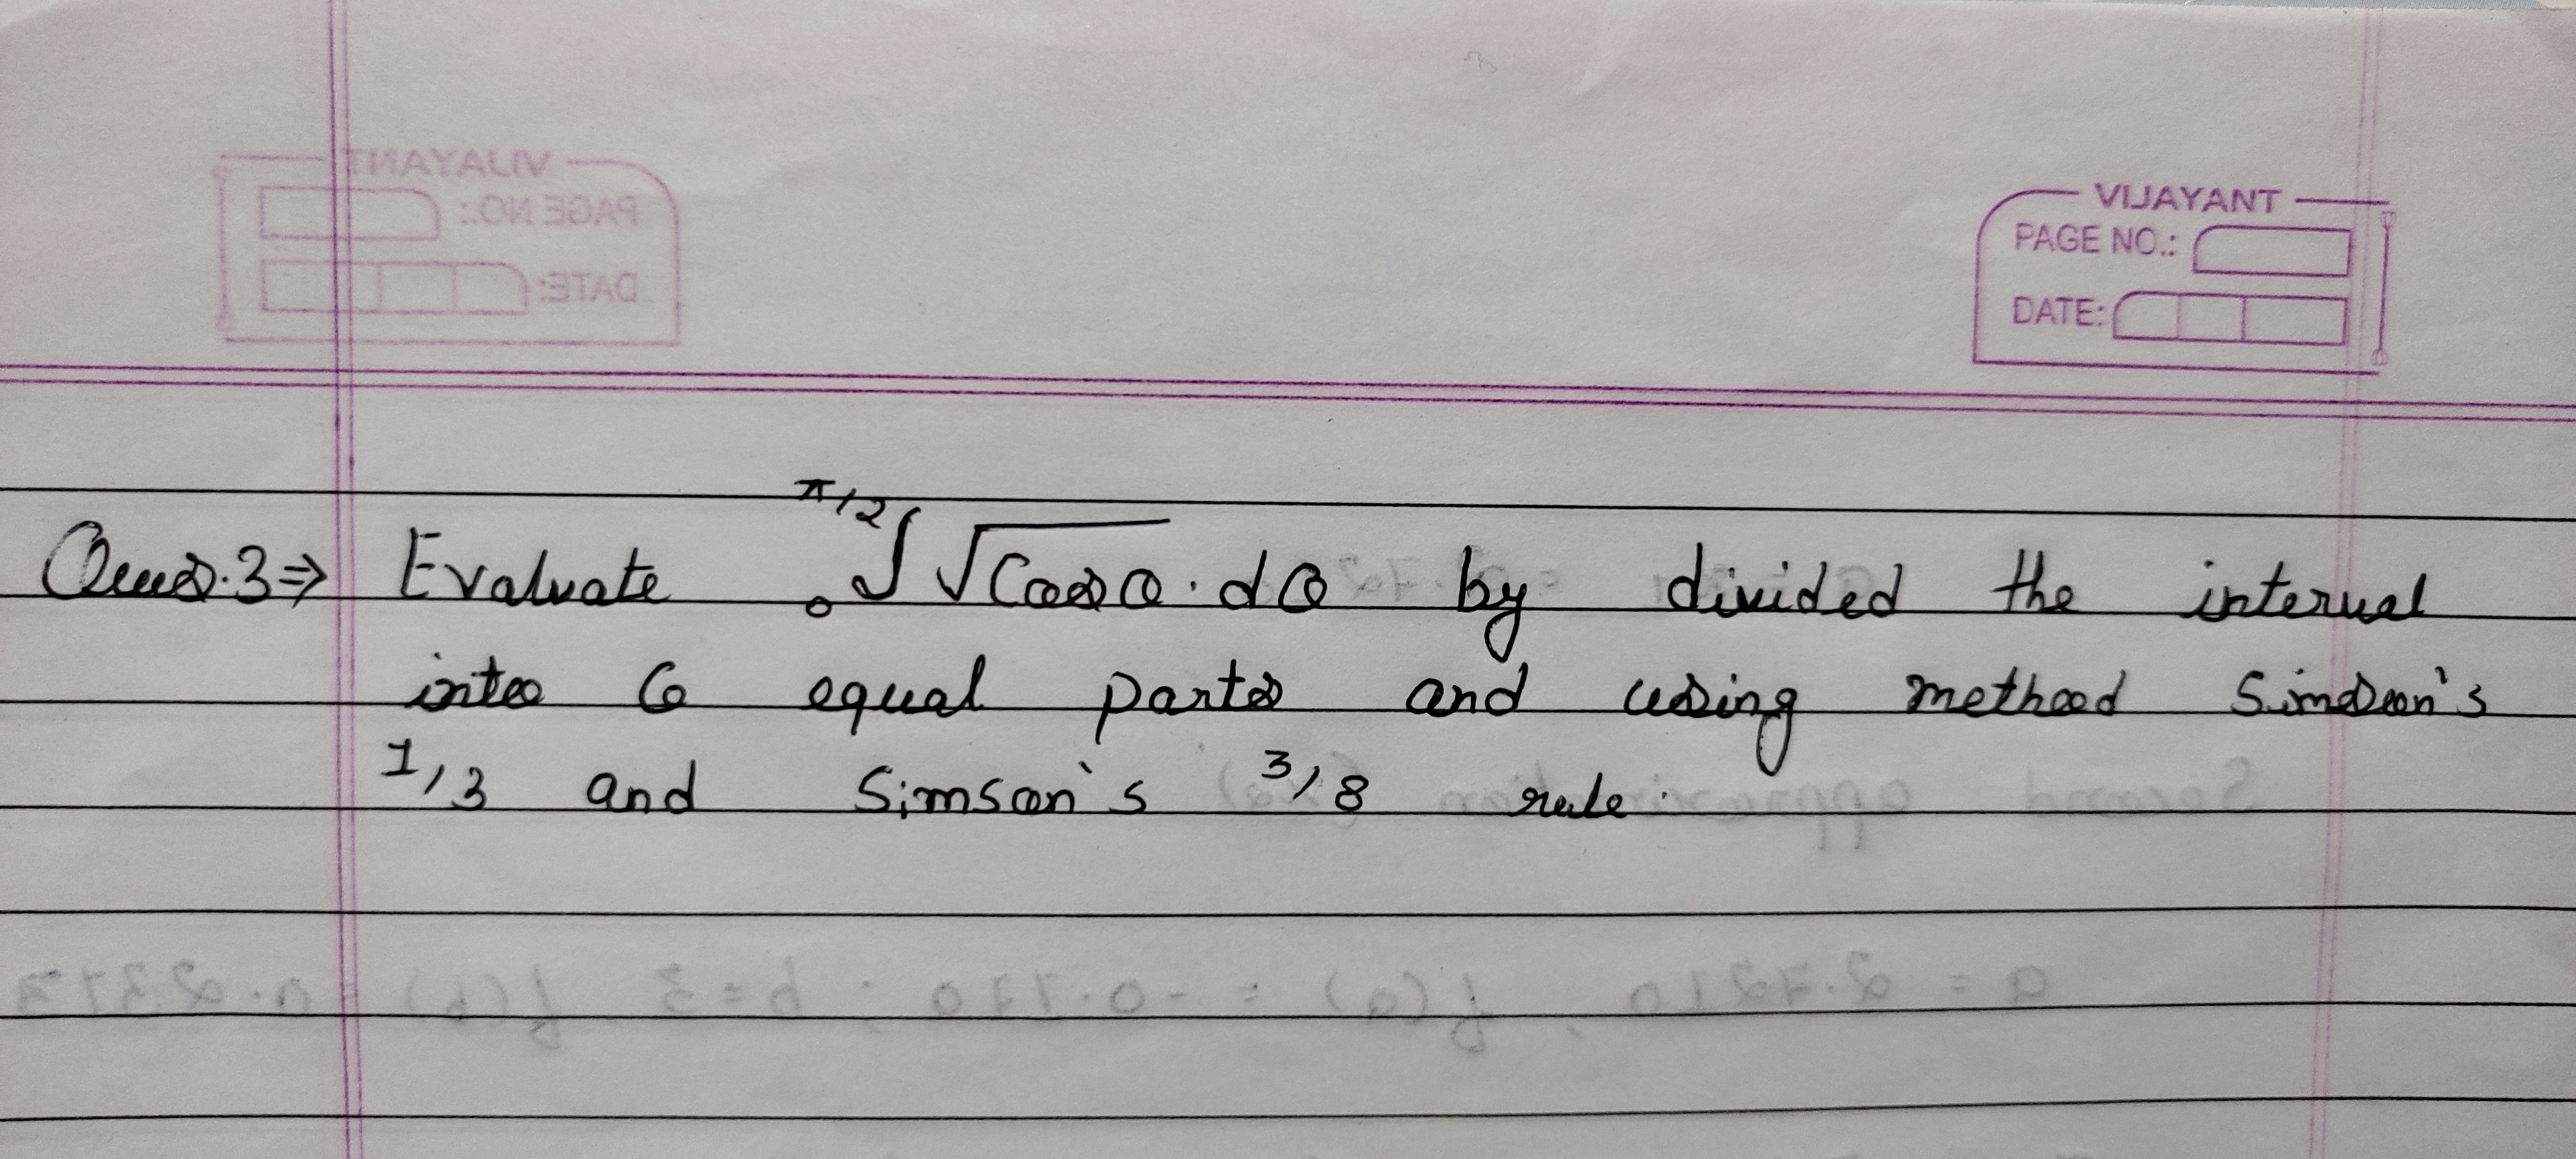 VIJAYANT
PAGE NO.:
DATE:
Ques.3⇒ Evaluate 0∫π/2 √Cosθ · dθ by divided the interval
into 6 equal parts and using method Simson's
1/3 and Simson's 3/8 rule.